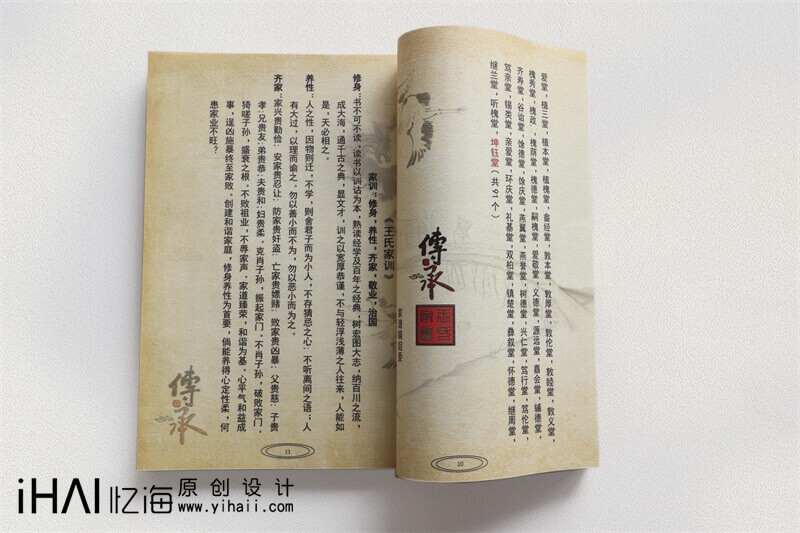 爱堂，植三堂，植本堂，植槐堂，畲经堂，敦本堂，敦厚堂，敦伦堂，敦睦堂，敦义堂，
槐秀堂，槐政，槐荫堂，槐德堂，嗣槐堂，爱敬堂，义德堂，源远堂，嘉会堂，辅德堂，
齐寿堂，谷诒堂，馀德堂，馀庆堂，燕翼堂，燕誉堂，树德堂，兴仁堂，笃行堂，笃伦堂，
笃亲堂，锡类堂，亲爱堂，环庆堂，礼基堂，双柏堂，镇楚堂，彝叙堂，怀德堂，继周堂，
继兰堂，听槐堂，坤钰堂（共91个）
傳承
10
《王氏家训》
家训：修身，养性，齐家，敬业，治国
修身：书不可不读，读书以训诂为本，熟读经学及百年之经典；树宏图大志，纳百川之流，
成大海，通千古之典，显文才，训之以宽厚恭谨，不与轻浮浅薄之人往来，人能如
是，天必相之。
养性：人之性，因物则迁，不学，则舍君子而为小人，不存猜忌之心；不听离间之语；人
有大过，以理而谕之。勿以善小而不为，勿以恶小而为之。
齐家：家兴贵勤俭；安家贵忍让；防家贵奸盗；亡家贵嫖赌；败家贵凶暴；父贵慈；子贵
孝；兄贵友；弟贵恭；夫贵和；妇贵柔。克肖子孙，振起家门。不肖子孙，破败家门。
猗嗟子孙，盛衰之根。不败祖业，不辱家声。家道臻荣，和谐为基、心平气和益成
事，逞凶施暴终至家败。创建和谐家庭，修身养性为首要，倘能养得心定性柔，何
患家业不旺？
傳承
11
iHAI忆海 原创设计
www.yihaii.com